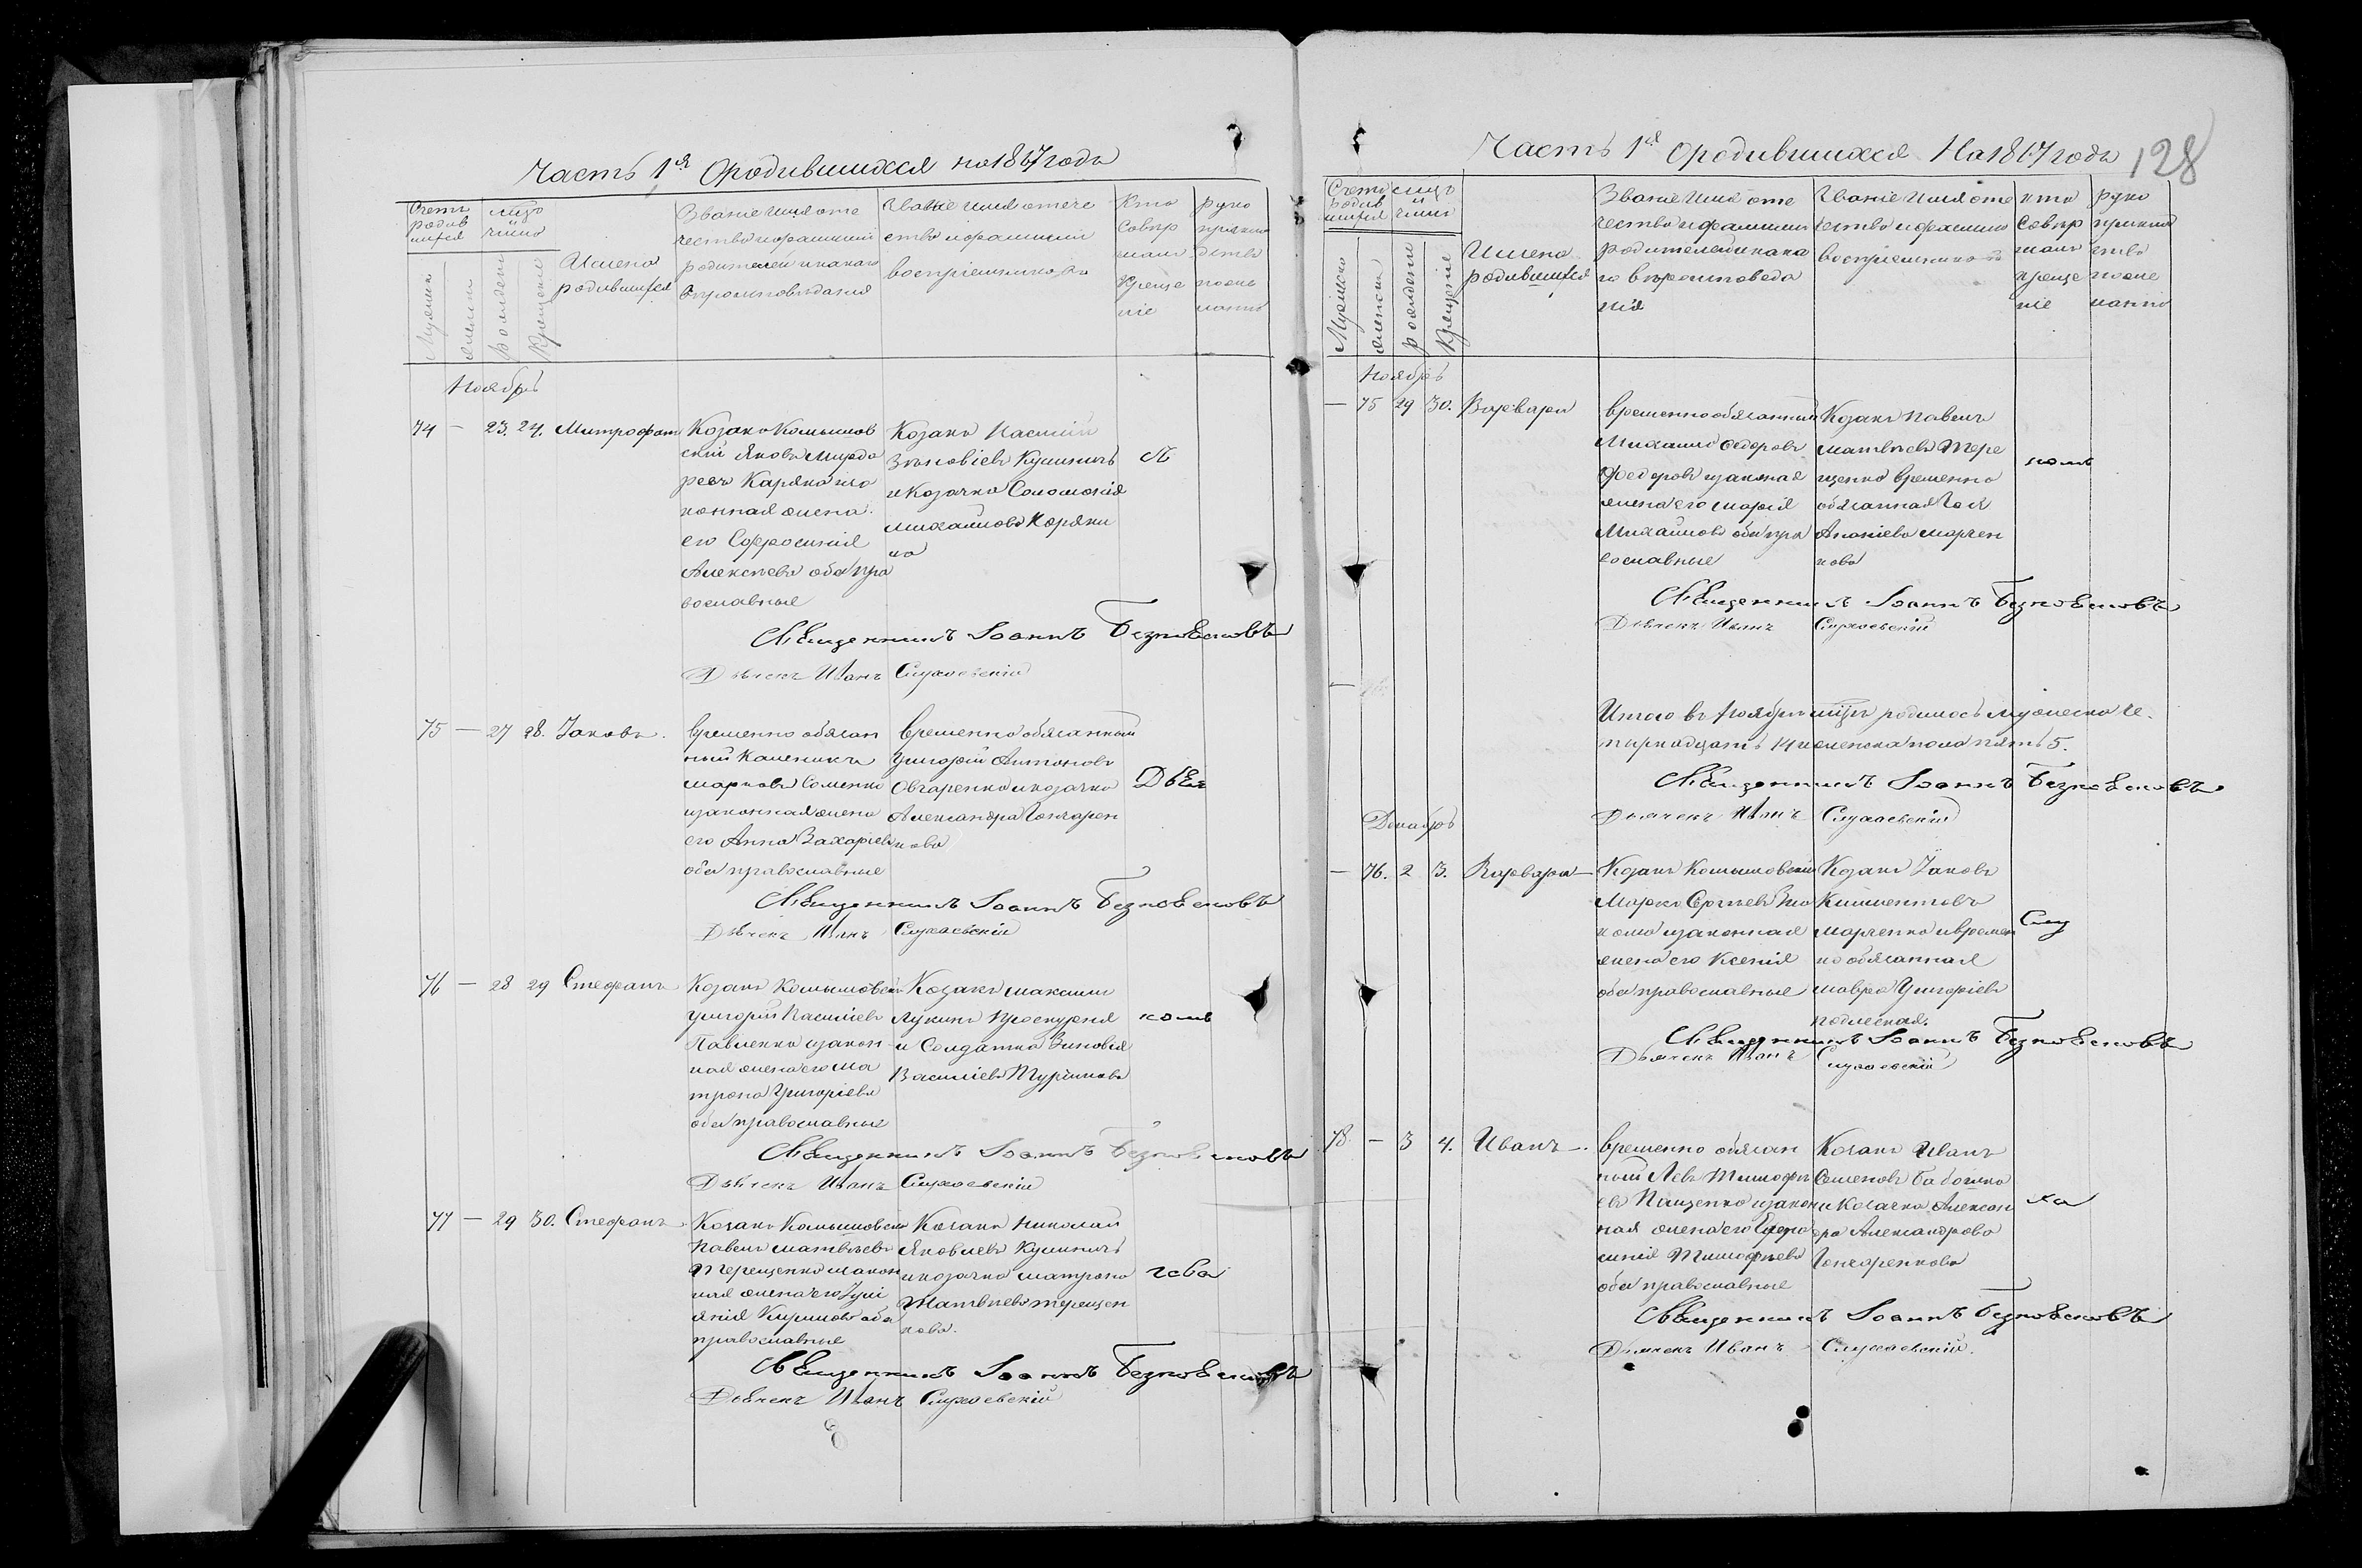 Часть 1я Ородившихся на 1867 годъ
Счетъ родив шихся
Мужеск
женск
мцъ число
рожденія
Крещенія
Имена родившихся
Званіе имя оте
чество и фамиліи
родителей и какого
вѣроисповѣданія
Званіе имя отече
ство и фамиліи
воспріемниковъ
Кто
совер
шалъ
Креще
ніе
руко
прикла
дство
Ноябрь
74 — 23. 24. Митрофанъ
Козакъ Комышов
скій Яковъ
Каряка и за
конная жена
его Ефросинія
Алексѣева оба пра
вославные
Козакъ Василій
Зѣновіевъ Кулиничъ
и Козачка Соломонія
Михайлова Коряки
на
Священникъ Іоаннъ Безповѣсковъ
Дьячекъ Иванъ Слухаевскій
75 — 27 28. Іаковъ.
временно обязан
ный Каленикъ
Марковъ Соменко
и законная жена
его Анна Захаріева
оба православные
временно обязанный
Григорій Антоновъ
Овчаренко и козачка
Александра Гончарен
кова
Священникъ Іоаннъ Безповѣсковъ
Дьячекъ Иванъ Слухаевскій
76 — 28 29 Стефанъ
Козакъ Комышовскій
Григорій Василіевъ
Павленко и закон
ная жена его Ма
трона Григоріева
оба православные
Козакъ Максимъ
Лукинъ Проскурня
и Солдатка Зиновія
Василіева Турчинова
Священникъ Іоаннъ Безповѣсковъ
Дьячекъ Иванъ Слухаевскій
77 — 29 30. Стефанъ
Козакъ Комышовскій
Павелъ Матвѣевъ
Терещенко и закон
ная жена его Іулі
янія Кирилова оба
православные
Козакъ Николай
Яковлевъ Кулиничъ
и козачка Матрона
Матвѣева Терещен
кова.
Священникъ Іоаннъ Безповѣсковъ
Дьячекъ Иванъ Слухаевскій
Часть 1я Ородившихся На 1867 годъ
128
Счетъ родив шихся
Мужеско
женски
мцъ число
рожденіе
Крещеніе
Имена
родившихся
Званіе Имя оте
чество и фамиліи
родителей и како
го вѣроисповѣда
нія
Званіе Имя оте
чество и фамилію
воспріемников
кто
совер
шалъ
креще
ніе
руко
приклад
ство
Ноябрь
— 75 29 30. Варвара
временно обязанный
Михаилъ Федоровъ
Федоровъ и законная
жена его Марія
Михайлова оба пра
вославные
Козакъ Павелъ
Матвѣевъ Тере
щенко временно
обязанная
Ананіева Марчен
кова
Священникъ Іоаннъ Безповѣсковъ
Дьячекъ Иванъ Слухаевскій
Итого въ Ноябрѣ мцѣ родилось мужеска че.
тырнадцать 14 и женска пола пять 5.
Священникъ Іоаннъ Безповѣсковъ
Дьячекъ Иванъ Слухаевскій
Декабрь
— 76. 2 3. Варвара
Козакъ Комышовскій
Марко Сергѣевъ
и законная
жена его Ксенія
оба православные
Козакъ Іаковъ
Климентовъ
Марченко и времен
но обязанная
Мавра Григоріева
Священникъ Іоаннъ Безповѣсковъ
Дьячекъ Иванъ Слухаевскій
78. — 3 4. Иванъ.
временно обязан
ный Левъ Тимофѣ
евъ Пащенко и закон
ная жена его Ефро
синія Тимофѣева
оба православные
Козакъ Иванъ
Семеновъ
и Козачка Алексан
дра Александрова
Гончаренкова
Священникъ Іоаннъ Безповѣсковъ
Дьячекъ Иванъ Слухаевскій.